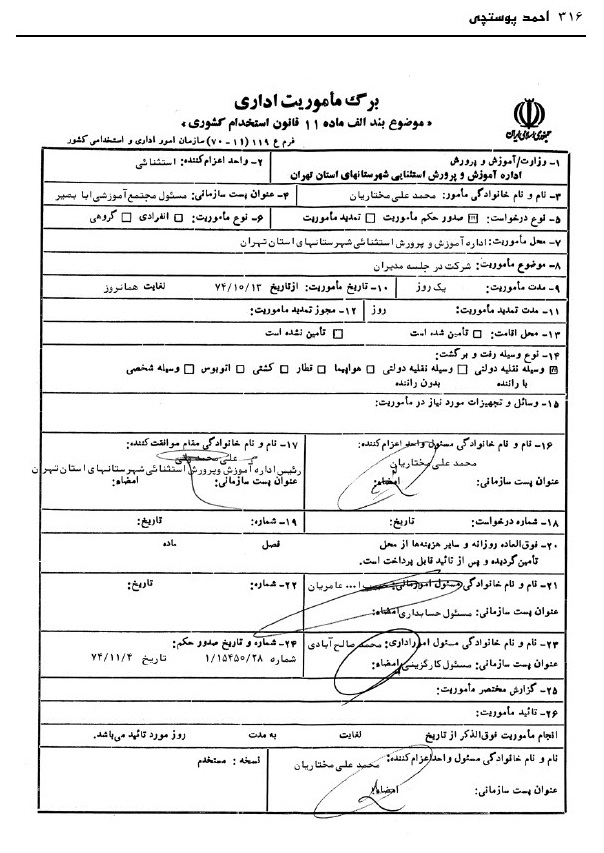 ۳۱۶ احمد پوستچی
جمهوری اسلامی ایران
برگ مأموریت اداری
« موضوع بند الف ماده ۱۱ قانون استخدام کشوری »
فرم ع ۱۱۹ (۱۱-۷۰) سازمان امور اداری و استخدامی کشور
۱- وزارت/آموزش و پرورش
اداره آموزش و پرورش استثنایی شهرستانهای استان تهران
۲- واحد اعزام کننده: استثنائی
۳- نام و نام خانوادگی مأمور: محمد علی مختاریان
۴- عنوان پست سازمانی: مسئول مجتمع آموزشی ابا بصیر
۵- نوع درخواست: صدور حکم مأموریت تمدید مأموریت
۶- نوع مأموریت: انفرادی گروهی
۷- محل مأموریت: اداره آموزش و پرورش استثنائی شهرستانهای استان تهران
۸- موضوع مأموریت: شرکت در جلسه مدیران
۹- مدت مأموریت: یک روز
۱۰- تاریخ مأموریت: از تاریخ ۷۴/۱۰/۱۳ لغایت همانروز
۱۱- مدت تمدید مأموریت: روز
۱۲- مجوز تمدید ماموریت:
۱۳- محل اقامت: تأمین شده است تأمین نشده است
۱۴- نوع وسیله رفت و برگشت:
وسیله نقلیه دولتی وسیله نقلیه دولتی هواپیما قطار کشتی اتوبوس وسیله شخصی
با راننده بدون راننده
۱۵- وسائل و تجهیزات مورد نیاز در مأموریت:
۱۶- نام و نام خانوادگی مسئول واحد اعزام کننده:
محمد علی مختاریان
عنوان پست سازمانی: امضاء:
۱۷- نام و نام خانوادگی مقام موافقت کننده:
علی محمد
رئیس اداره آموزش وپرورش استثنائی شهرستانهای استان تهران
عنوان پست سازمانی: امضاء:
۱۸- شماره درخواست: تاریخ:
۱۹- شماره: تاریخ:
۲۰- فوق‌العاده روزانه و سایر هزینه‌ها از محل فصل ماده
تأمین گردیده و پس از تائید قابل پرداخت است.
۲۱- نام و نام خانوادگی مسئول امورمالی: حبیب ا... عامریان
عنوان پست سازمانی: مسئول حسابداری امضاء:
۲۲- شماره: تاریخ:
۲۳- نام و نام خانوادگی مسئول امور اداری: محمد صالح آبادی
عنوان پست سازمانی: مسئول کارگزینی امضاء:
۲۴- شماره و تاریخ صدور حکم:
شماره ۱/۱۵۴۵۰/۲۸ تاریخ ۷۴/۱۱/۴
۲۵- گزارش مختصر مأموریت:
۲۶- تائید مأموریت:
انجام مأموریت فوق‌الذکر از تاریخ لغایت به مدت روز مورد تائید می‌باشد.
نام و نام خانوادگی مسئول واحد اعزام کننده: محمد علی مختاریان
عنوان پست سازمانی: امضاء:
نسخه: مستخدم